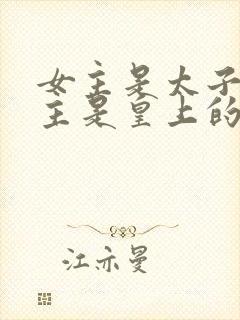 女主是太子
主是皇上的
江亦曼